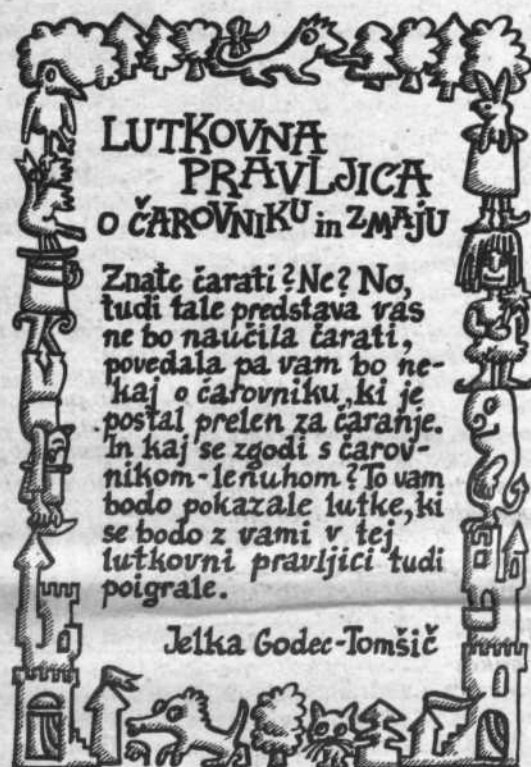 LUTKOVNA
PRAVLJICA
O ČAROVNIKU in ZMAJU
Znate čarati? Ne? No,
tudi tale predstava vas
ne bo naučila čarati,
povedala pa vam bo ne-
kaj o čarovniku, ki je
postal prelen za čaranje.
In kaj se zgodi s čarov-
nikom-lenuhom? To vam
bodo pokazale lutke, ki
se bodo z vami v tej
lutkovni pravljici tudi
poigrale.
Jelka Godec-Tomšič